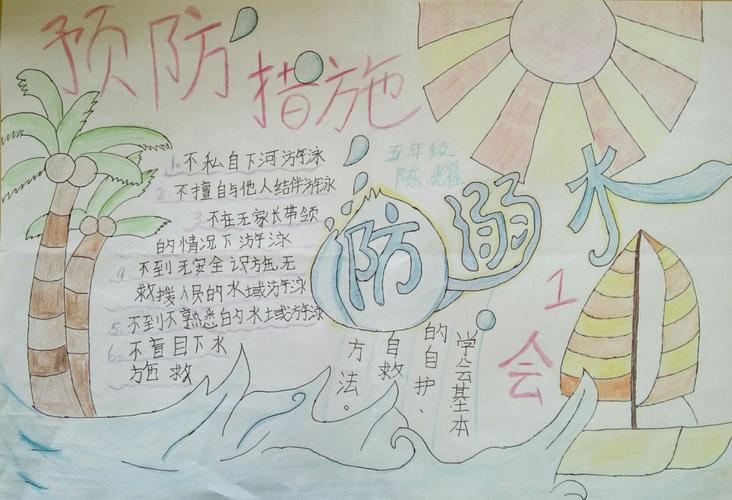 预防措施
1. 不私自下河游泳
2. 不擅自与他人结伴游泳
3. 不在无家长带领
的情况下游泳
4. 不到无安全设施无
救援人员的水域游泳
5. 不到不熟悉的水域游泳
6. 不盲目下水
施救
五年级
陈耀
防溺水
1会
学会基本
的自护、
自救
方法。